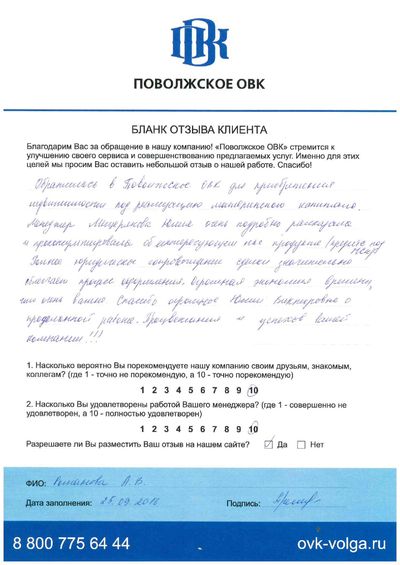 ПОВОЛЖСКОЕ ОВК
БЛАНК ОТЗЫВА КЛИЕНТА
Благодарим Вас за обращение в нашу компанию! «Поволжское ОВК» стремится к
улучшению своего сервиса и совершенствованию предлагаемых услуг. Именно для этих
целей мы просим Вас оставить небольшой отзыв о нашей работе. Спасибо!
Обратилась в Поволжское ОВК для приобретения
недвижимости под реализацию материнского капитала.
Менеджер Мещерякова Юлия очень подробно рассказала
и проконсультировала об интересующем нас продукте
юридическое сопровождение сделки значительно
облегчает процесс оформления. Огромная экономия времени,
что очень важно. Спасибо огромное Юлии Викторовне о
проделанной работе. Процветания и успехов Вашей
компании!!!
1. Насколько вероятно Вы порекомендуете нашу компанию своим друзьям, знакомым,
коллегам? (где 1 - точно не порекомендую, а 10 - точно порекомендую)
1 2 3 4 5 6 7 8 9 10
2. Насколько Вы удовлетворены работой Вашего менеджера? (где 1 - совершенно не
удовлетворен, а 10 - полностью удовлетворен)
1 2 3 4 5 6 7 8 9 10
Разрешаете ли Вы разместить Ваш отзыв на нашем сайте? Да Нет
ФИО: Романова Л.В.
Дата заполнения: 25.09.2018 Подпись:
8 800 775 64 44 ovk-volga.ru